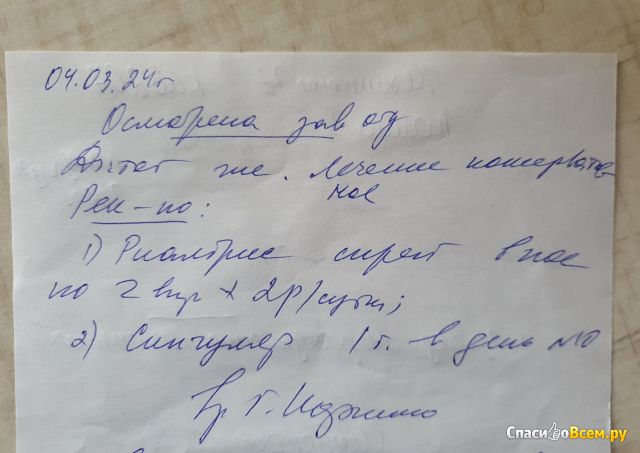 04.03.24г
Осмотрена зав отд
Диагноз тот же. Лечение консерватив
ное
Рек-но:
1) Риалтрис спрей в нос
по 2 впр х 2р/сутки;
2) Сингуляр 1т. в день №10
Вр Г.
СпасибоВсем.ру